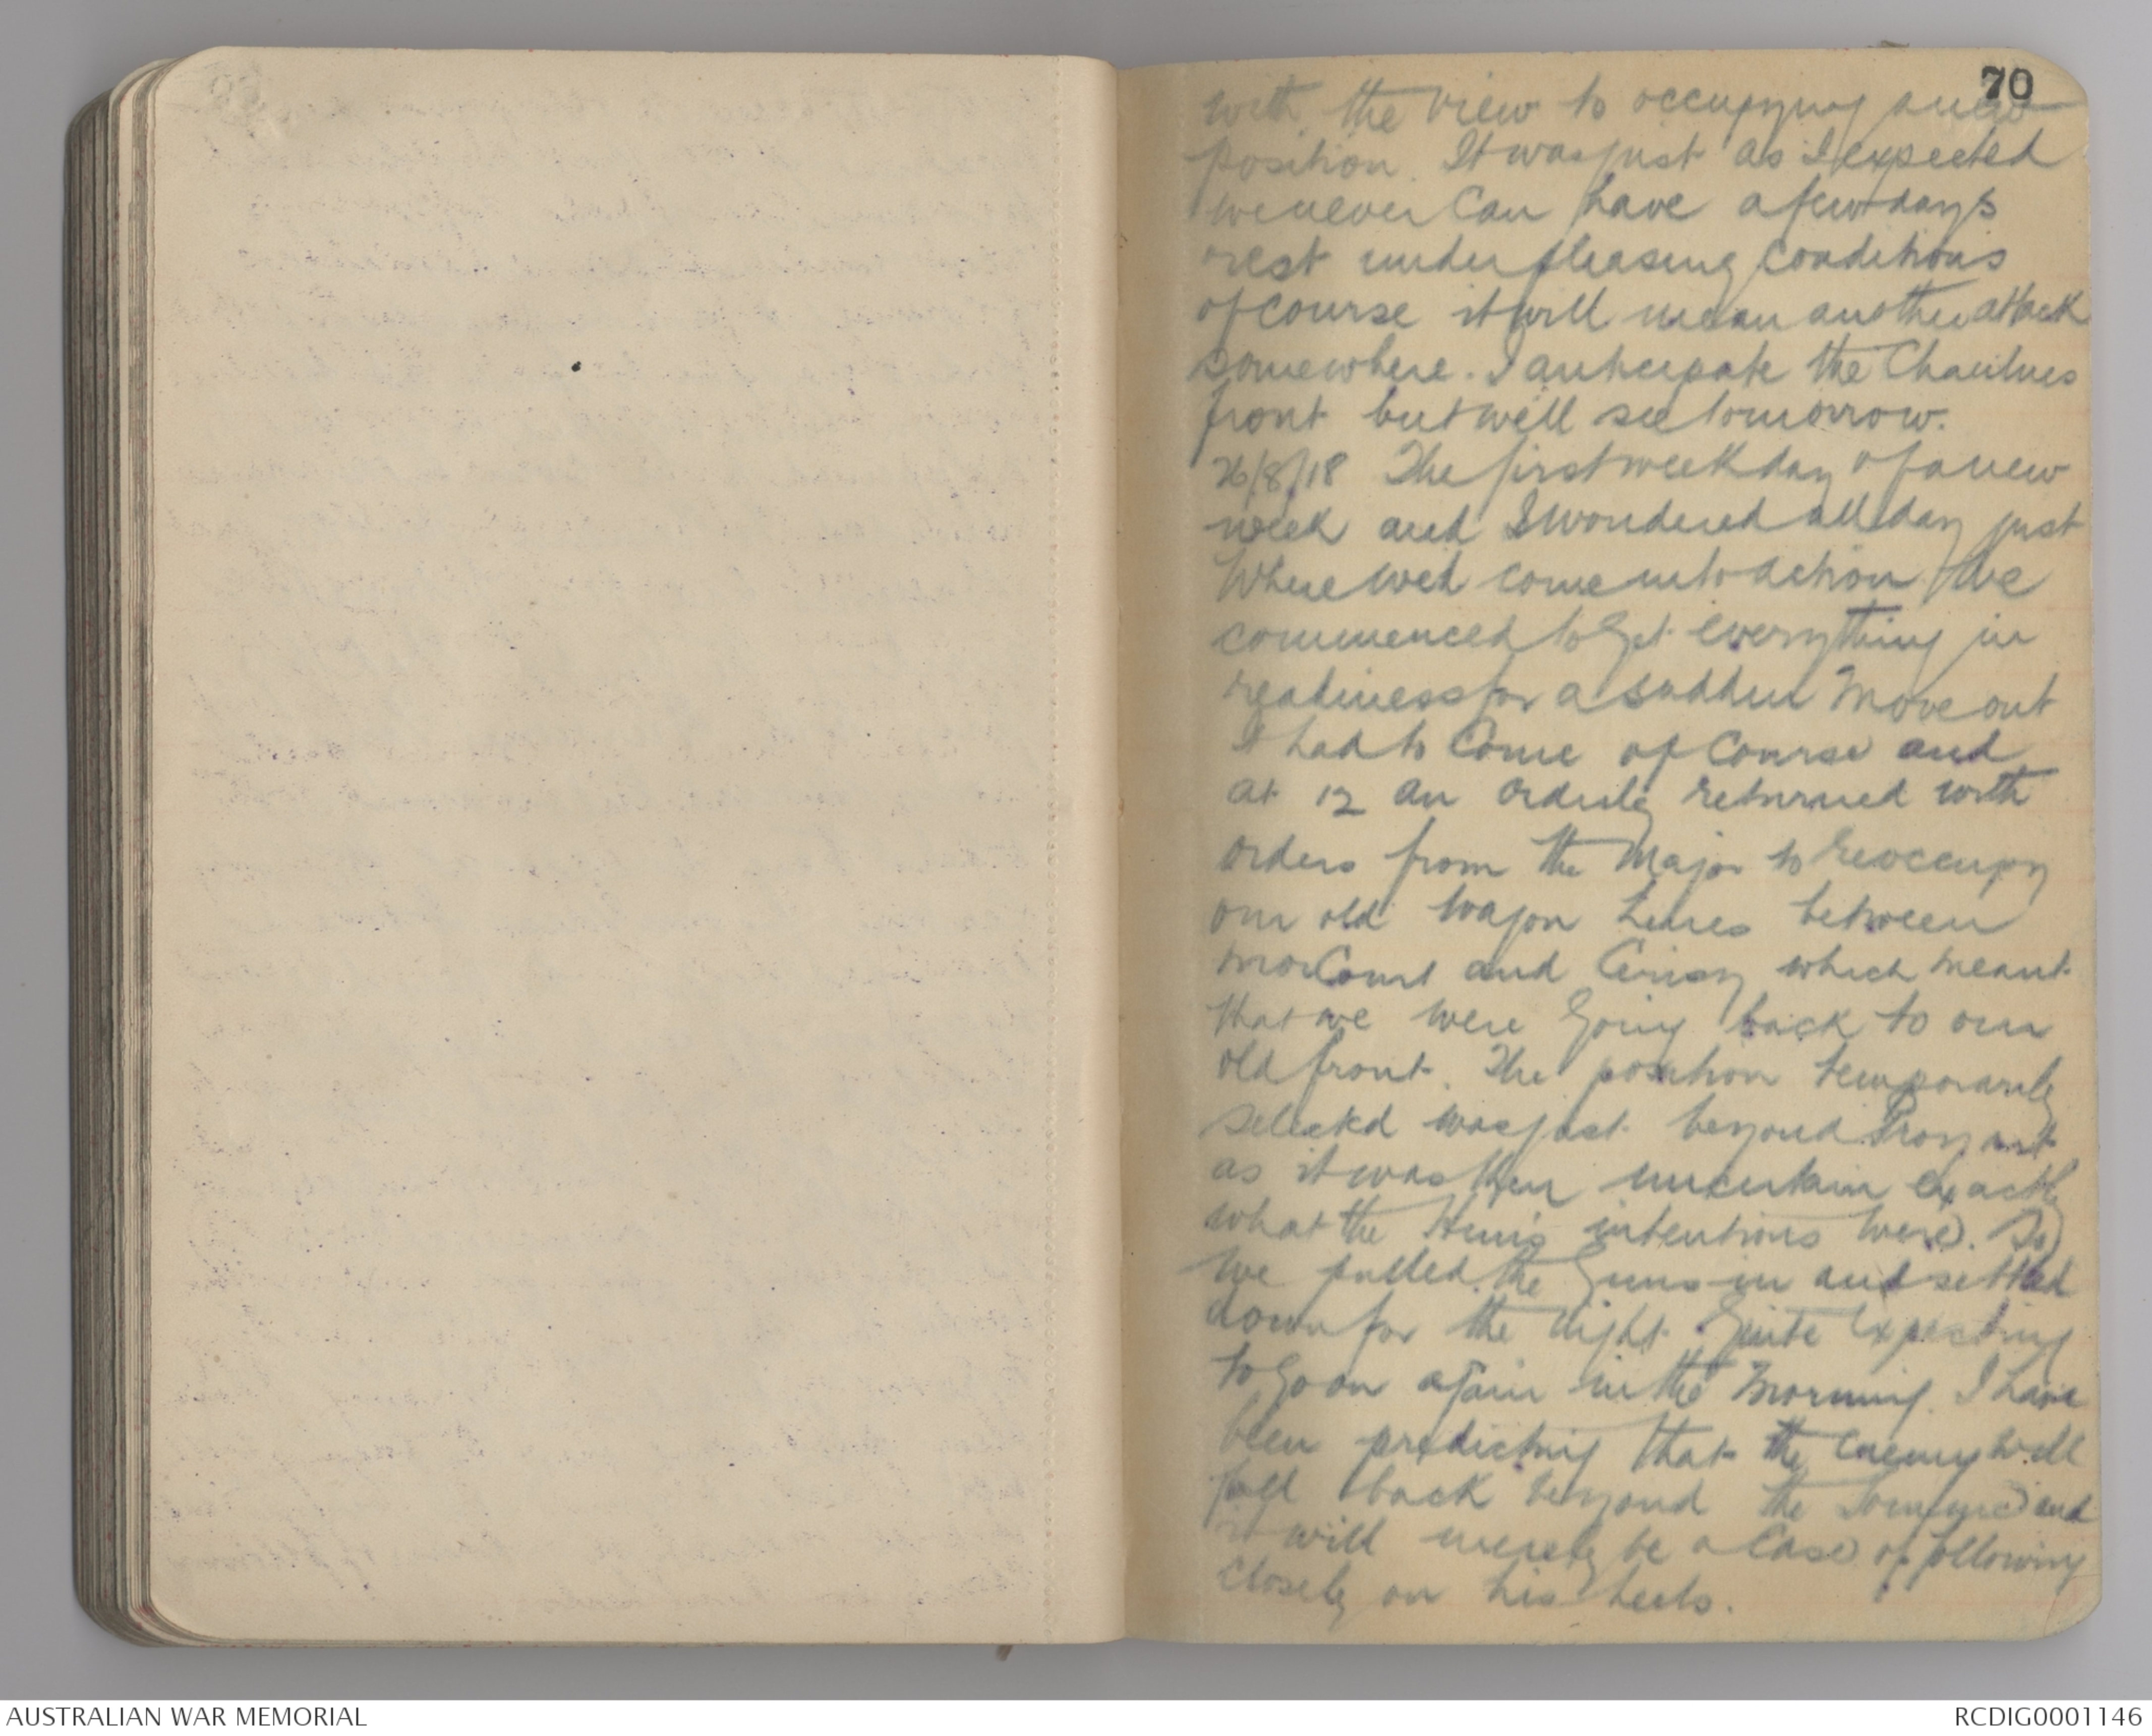 70
with the view to occupying a new
position. It was just as I expected
we never can have a few days
rest under pleasing conditions
of course it will mean another attack
somewhere. I anticipate the Chaulnes
front but well see tomorrow.
26/8/18 The first week day of a new
week and I wondered all day just
where wed come into action. We
commenced to get everything in
readiness for a sudden move out
It had to come of course and
at 12 an orderly returned with
orders from the Major to reoccupy
our old wagon lines between
MorCourt and Cerisy which meant
that we were going back to our
old front. The position temporarily
selected was just beyond Proyart
as it was then uncertain exactly
what the Huns intentions were. So
we pulled the guns in and settled
down for the night quite expecting
to go on again in the morning. I have
been predicting that the enemy will
fall back beyond the Somme and
it will merely be a case of following
closely on his heels.
AUSTRALIAN WAR MEMORIAL
RCDIG0001146